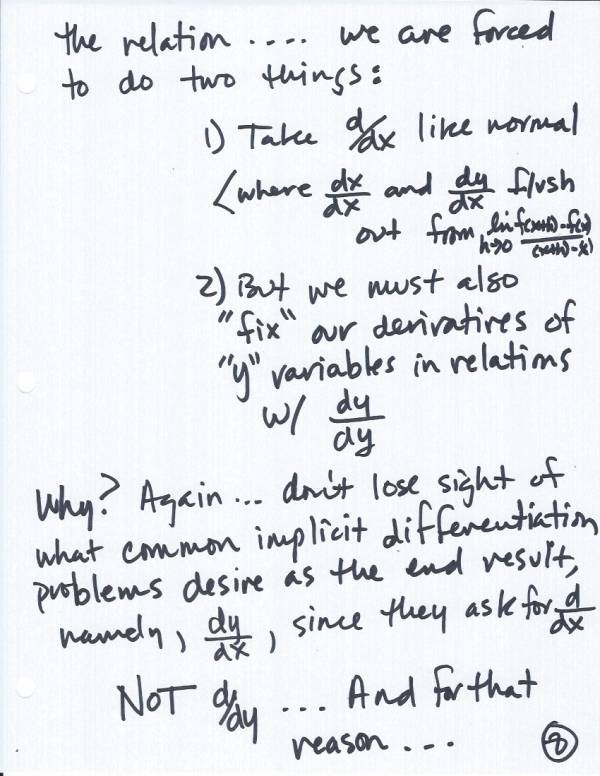 the relation .... we are forced
to do two things:
1) Take d/dx like normal
(where dx/dx and dy/dx flush
out from lim h→0 f(x+h)-f(x)/(x+h)-x)
2) But we must also
"fix" our derivatives of
"y" variables in relations
w/ dy/dy
Why? Again... don't lose sight of
what common implicit differentiation
problems desire as the end result,
namely, dy/dx, since they ask for d/dx
NOT d/dy ... And for that
reason ...
8